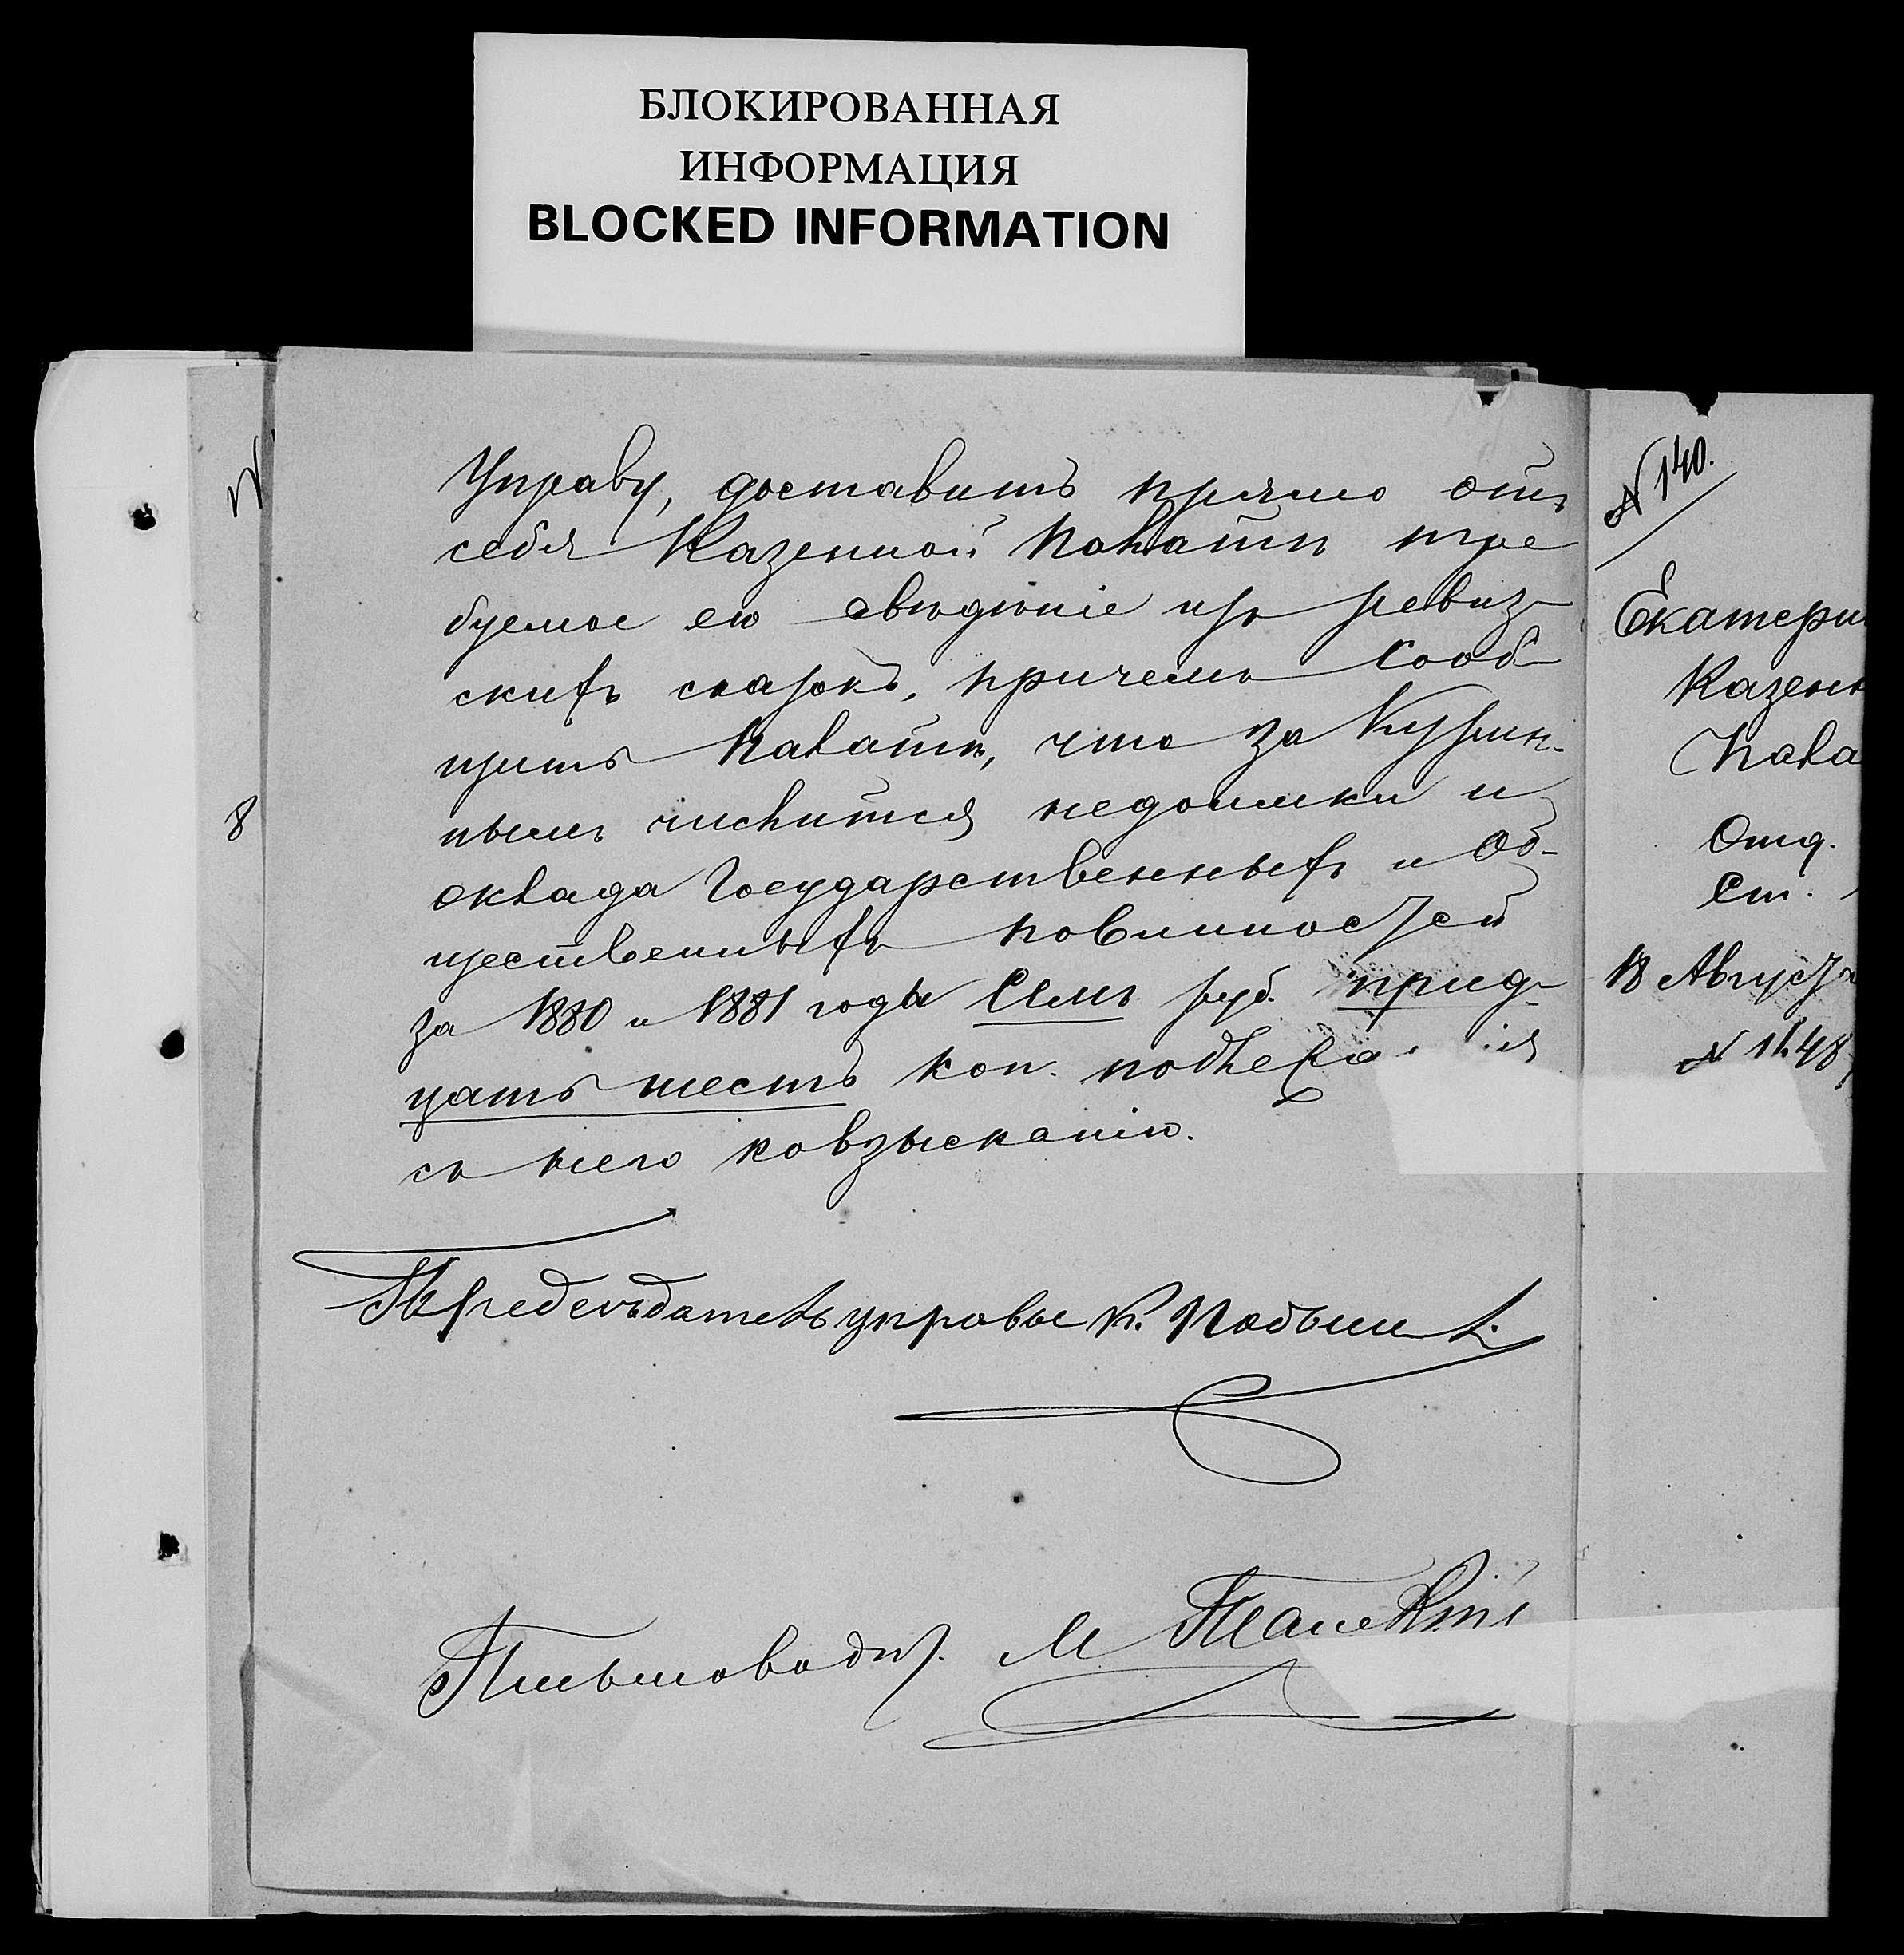 БЛОКИРОВАННАЯ
ИНФОРМАЦИЯ
BLOCKED INFORMATION
Управу, доставить прямо отъ
себя Казенной Палатѣ тре
буемое ею свѣдѣніе изъ ревиз-
скихъ сказокъ, причемъ сооб-
щить Палатѣ, что за Кузмин-
нымъ числится недоимки и
оклада Государственныхъ и Об-
щественныхъ повинностей
за 1880 и 1881 годы Семь руб. трид-
цать шесть коп. подлежа
съ него ко взысканію.
Предсѣдатель управы К.
Письмовод. М
№ 140.
Екатерин
Казенн
Пала
Отд.
Ст.
18 Августа
№
8